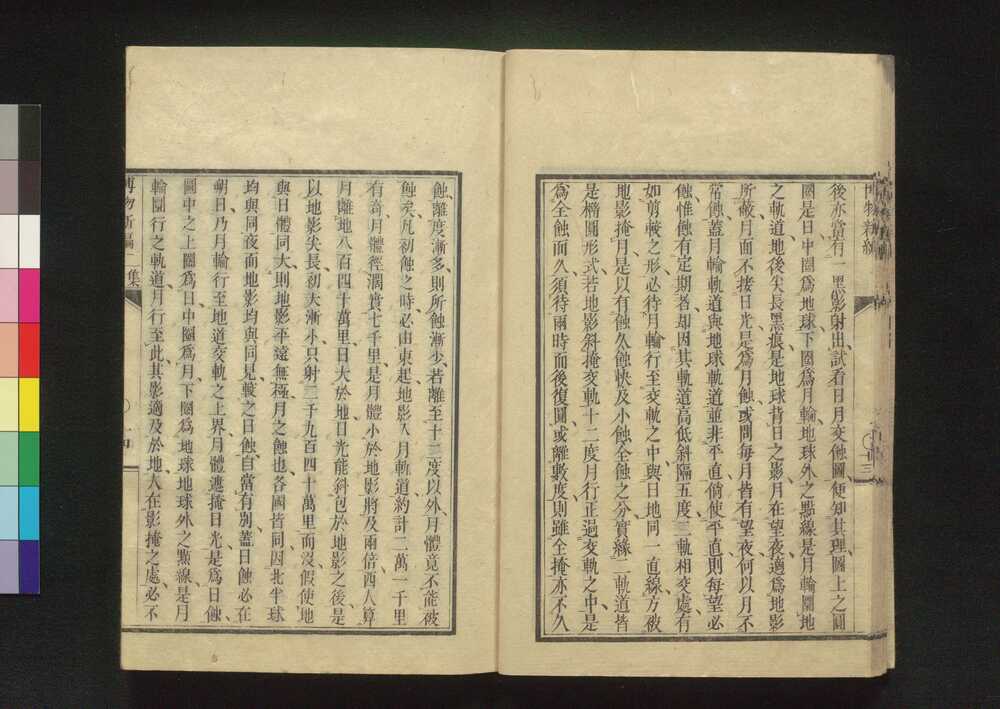 博物新編
後亦當有一黑影射出試看日月交蝕圖便知其理圖上之圓
圈是日中圈爲地球下圈爲月輪地球外之點線是月輪圜地
之軌道地後尖長黑痕是地球背日之影月在望夜適爲地影
所蔽月面不接日光是爲月蝕或問每月皆有望夜何以月不
常蝕蓋月輪軌道與地球軌道並非平直倘使平直則每望必
蝕惟蝕有定期者却因其軌道高低斜隔五度三軌相交處有
如剪較之形必待月輪行至交軌之中與日地同一直線方被
地影掩月是以有蝕久蝕快及小蝕全蝕之分實緣二軌道皆
是橢圓形式若地影斜掩交軌十二度月行正過交軌之中是
爲全蝕而久須待兩時而後復圓或離數度則雖全掩亦不久
十三
蝕離度漸多則所蝕漸少若離至十三度以外月體竟不能被
蝕矣凡初蝕之時必由東起地影入月軌道約計二萬一千里
有奇月體徑濶實七千里是月體小於地影將及兩倍西人算
月離地八百四十萬里日大於地日光能斜包於地影之後是
以地影尖長初大漸小只射二千九百四十萬里而沒假使地
與日體同大則地影平遠無極月之蝕也各國皆同因北半球
均與同夜而地影均與同見較之日蝕自當有別蓋日蝕必在
朔日乃月輪行至地道交軌之上界月體遮掩日光是爲日蝕
圖中之上圈爲日中圈爲月下圈爲地球地球外之㸃線是月
輪圜行之軌道月行至此其影適及於地人在影掩之處必不
博物新編二集
十四